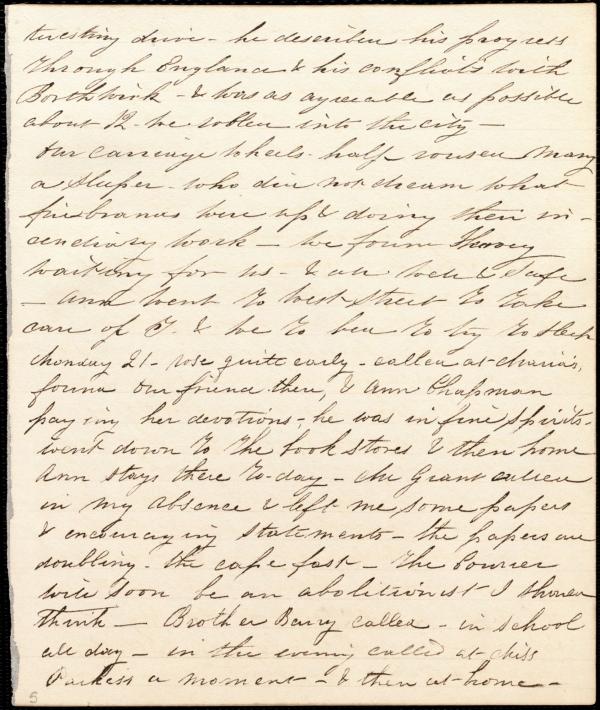 teresting drive - he described his progress
through England & his conflicts with
Borthwick - & was as agreeable as possible
about 12 - we rolled into the city -
Our carriage wheels - half roused many
a sleeper - who did not dream what
firebrands were up & doing their in-
cendiary work - we found Henry
waiting for us - & all well & safe
- Ann went to West Street to take
care of T. & we to bed to try to sleep
Monday 21 - rose quite early - called at Maria's,
found our friend there, & Ann Chapman
paying her devotions - he was in fine spirits -
went down to the book stores & then home
Ann stays there to-day - Mr Grant called
in my absence & left me some papers
& encouraging statements - the papers are
doubling the cape fast - The Courier
will soon be an abolitionist I should
think - Brother Benny called - in school
all day - in the evening called at Miss
Parkers a moment - & then at home -
5